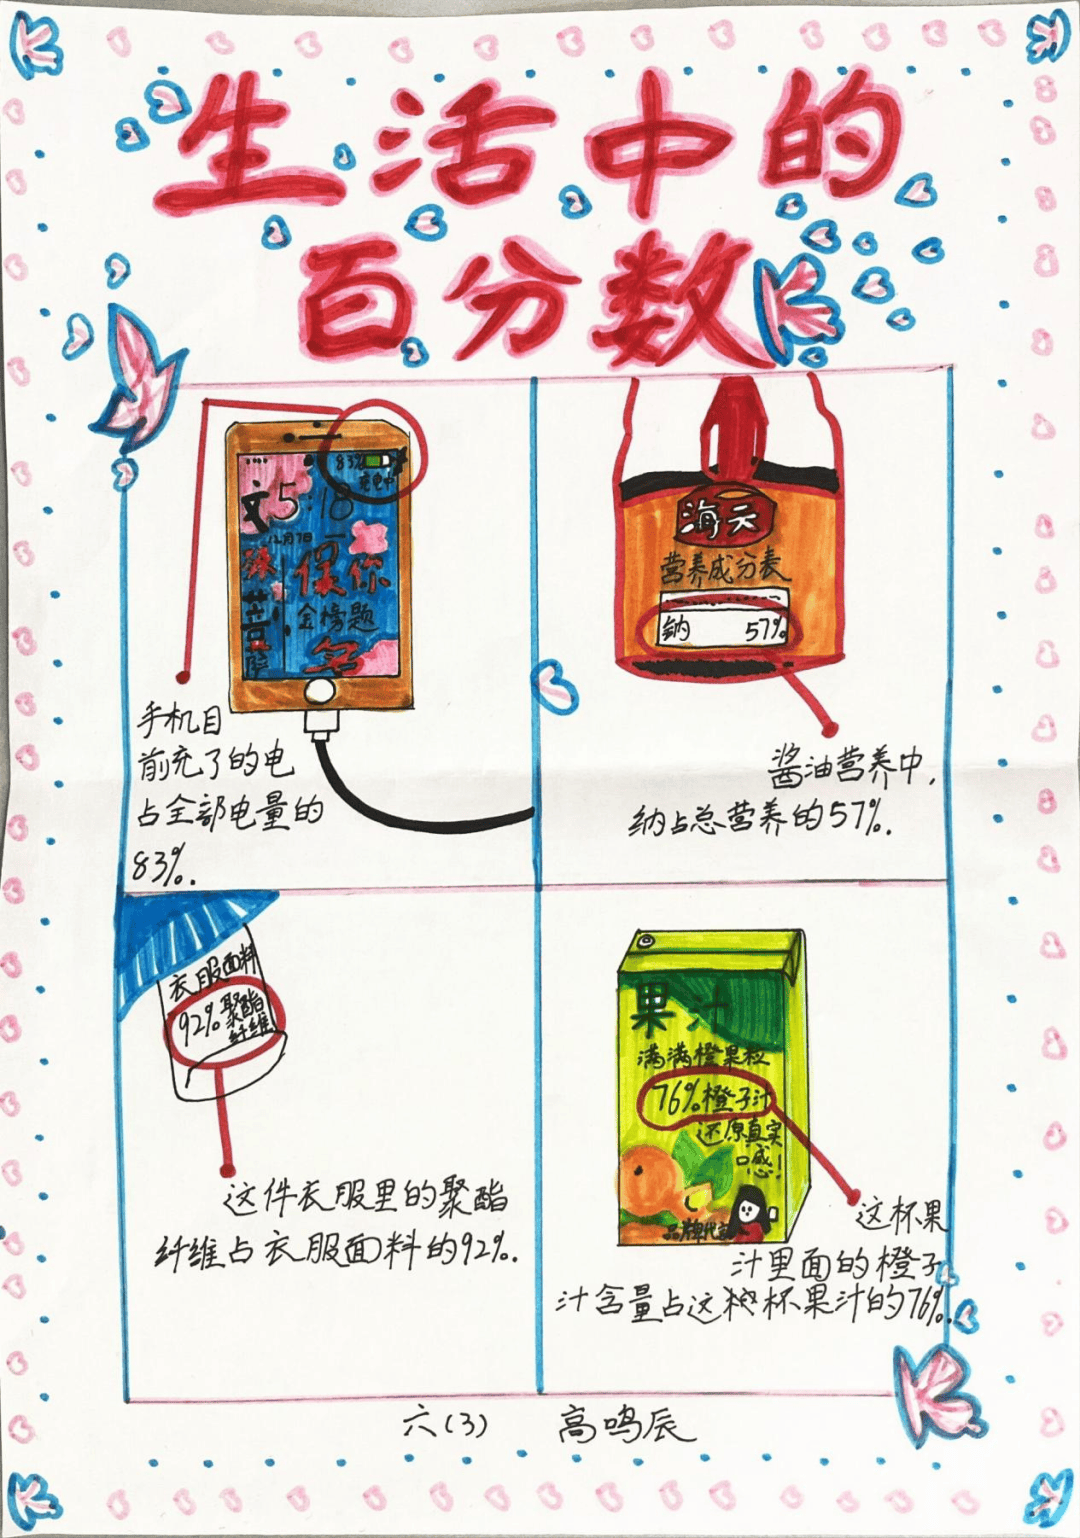 生活中的
百分数
83%
充电中
5:18
12月7日
保你
金榜题
名
手机目
前充了的电
占全部电量的
83%.
海天
营养成分表
钠 57%
酱油营养中,
钠占总营养的57%.
衣服面料
92%聚酯
纤维
这件衣服里的聚酯
纤维占衣服面料的92%.
果汁
满满橙果粒
76%橙子汁
还原真实
口感!
这杯果
汁里面的橙子
汁含量占这杯果汁的76%.
六(3) 高鸣辰